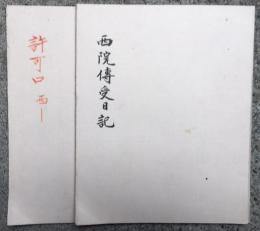 西院傳受日記
許可口 西一